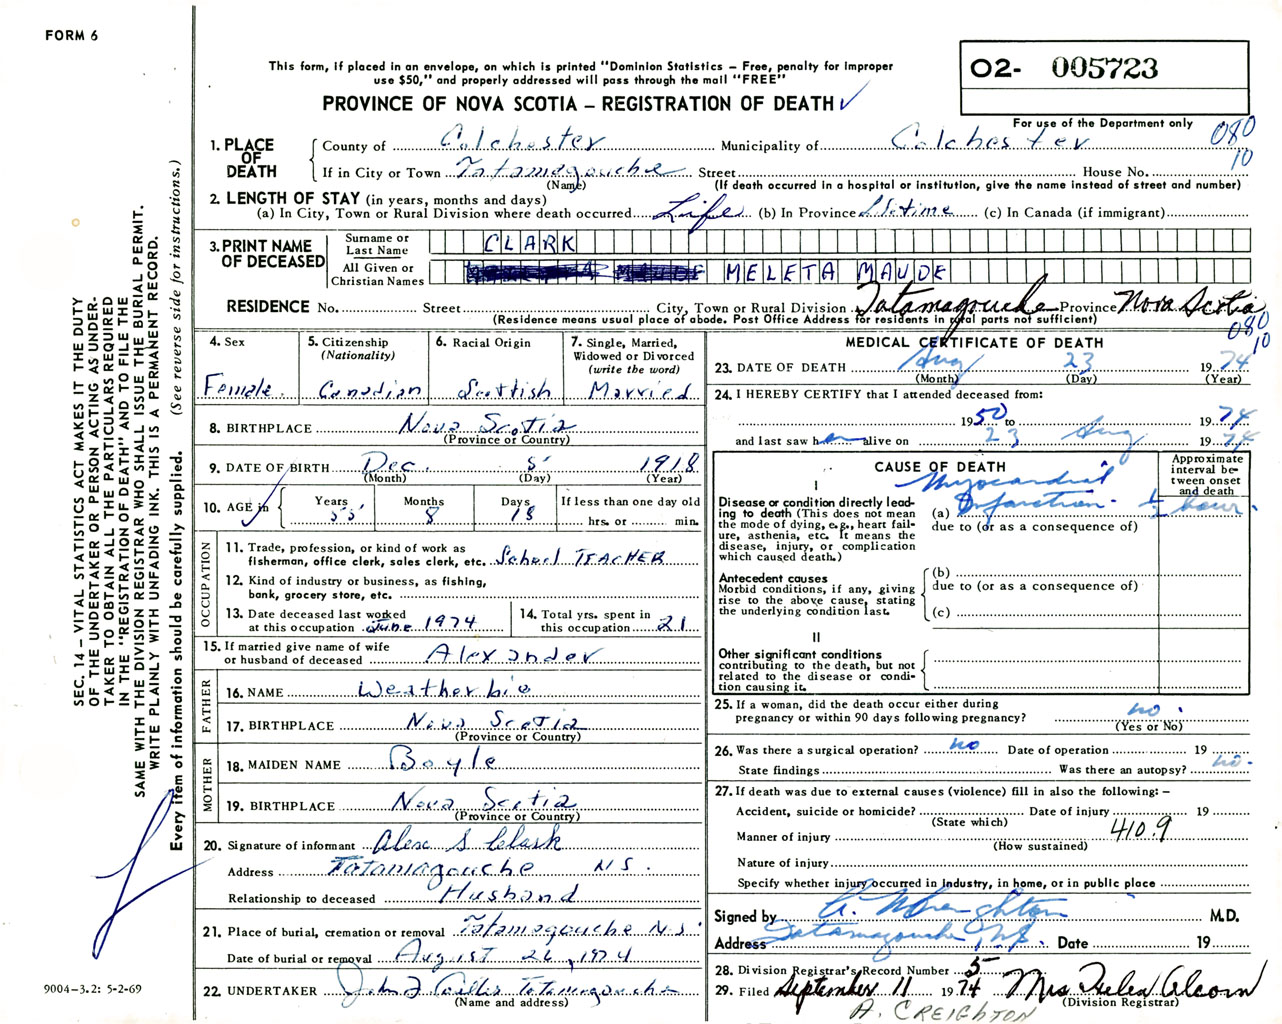 FORM 6
This form, if placed in an envelope, on which is printed "Dominion Statistics – Free, penalty for improper
use $50," and properly addressed will pass through the mail "FREE"
PROVINCE OF NOVA SCOTIA – REGISTRATION OF DEATH ✓
02- 005723
For use of the Department only
080
10
1. PLACE OF DEATH
County of Colchester Municipality of Colchester
If in City or Town Tatamagouche Street House No.
(Name) (If death occurred in a hospital or institution, give the name instead of street and number)
2. LENGTH OF STAY (in years, months and days)
(a) In City, Town or Rural Division where death occurred Life (b) In Province Lifetime (c) In Canada (if immigrant)
3. PRINT NAME OF DECEASED
Surname or Last Name CLARK
All Given or Christian Names MAUDE MELETA MAUDE
RESIDENCE No. Street City, Town or Rural Division Tatamagouche Province Nova Scotia
(Residence means usual place of abode. Post Office Address for residents in rural parts not sufficient)
080
10
4. Sex
Female
5. Citizenship
(Nationality)
Canadian
6. Racial Origin
Scottish
7. Single, Married,
Widowed or Divorced
(write the word)
Married
8. BIRTHPLACE Nova Scotia
(Province or Country)
9. DATE OF BIRTH Dec. 5 1918
(Month) (Day) (Year)
10. AGE in Years 55 Months 8 Days 18 If less than one day old
hrs. or min.
OCCUPATION
11. Trade, profession, or kind of work as
fisherman, office clerk, sales clerk, etc. School TEACHER
12. Kind of industry or business, as fishing,
bank, grocery store, etc.
13. Date deceased last worked
at this occupation June 1974
14. Total yrs. spent in
this occupation 21
15. If married give name of wife
or husband of deceased Alexander
FATHER
16. NAME Weatherbie
17. BIRTHPLACE Nova Scotia
(Province or Country)
MOTHER
18. MAIDEN NAME Boyle
19. BIRTHPLACE Nova Scotia
(Province or Country)
20. Signature of informant Alex S Clark
Address Tatamagouche N S.
Relationship to deceased Husband
21. Place of burial, cremation or removal Tatamagouche N.S.
Date of burial or removal August 26, 1974
22. UNDERTAKER John Tatamagouche
(Name and address)
MEDICAL CERTIFICATE OF DEATH
23. DATE OF DEATH Aug 23 1974
(Month) (Day) (Year)
24. I HEREBY CERTIFY that I attended deceased from:
1950 to 1974
and last saw her alive on 23 Aug 1974
CAUSE OF DEATH
Approximate
interval be-
tween onset
and death
I
Disease or condition directly lead-
ing to death (This does not mean
the mode of dying, e.g., heart fail-
ure, asthenia, etc. It means the
disease, injury, or complication
which caused death.)
Myocardial
(a) Infarction ½ hour.
due to (or as a consequence of)
Antecedent causes
Morbid conditions, if any, giving
rise to the above cause, stating
the underlying condition last.
(b)
due to (or as a consequence of)
(c)
II
Other significant conditions
contributing to the death, but not
related to the disease or condi-
tion causing it.
25. If a woman, did the death occur either during
pregnancy or within 90 days following pregnancy? no.
(Yes or No)
26. Was there a surgical operation? no Date of operation 19
State findings Was there an autopsy? no.
27. If death was due to external causes (violence) fill in also the following: –
Accident, suicide or homicide? Date of injury 19
(State which)
Manner of injury 410.9
(How sustained)
Nature of injury
Specify whether injury occurred in Industry, in home, or in public place
Signed by A. Creighton M.D.
Address Tatamagouche N.S. Date 19
28. Division Registrar's Record Number 5
29. Filed September 11 1974 Mrs Helen Alcorn
(Division Registrar)
A. CREIGHTON
SEC. 14 – VITAL STATISTICS ACT MAKES IT THE DUTY
OF THE UNDERTAKER OR PERSON ACTING AS UNDER-
TAKER TO OBTAIN ALL THE PARTICULARS REQUIRED
IN THE "REGISTRATION OF DEATH" AND TO FILE THE
SAME WITH THE DIVISION REGISTRAR WHO SHALL ISSUE THE BURIAL PERMIT.
WRITE PLAINLY WITH UNFADING INK. THIS IS A PERMANENT RECORD.
Every item of information should be carefully supplied. (See reverse side for instructions.)
9004-3.2: 5-2-69